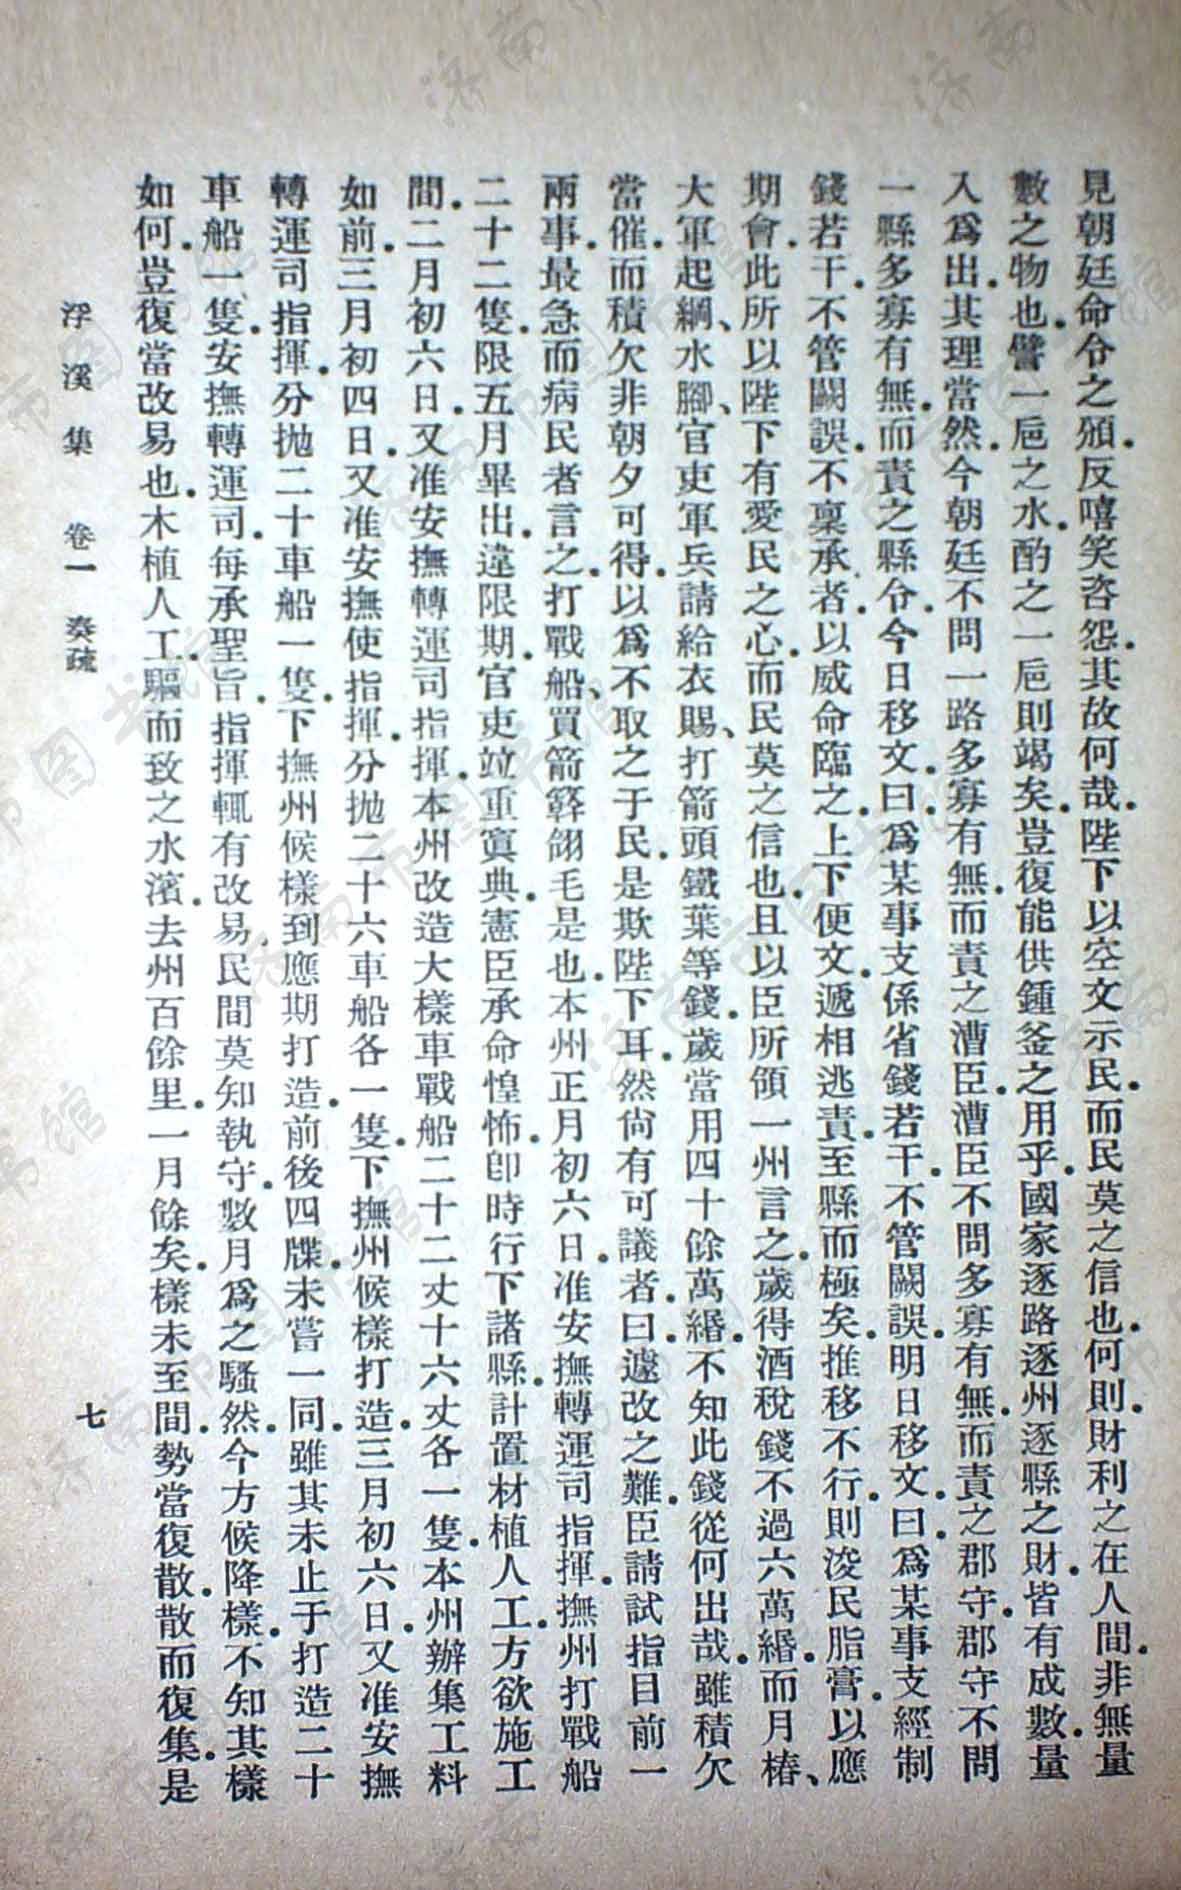 見朝廷命令之頒.反嘻笑咨怨.其故何哉.陛下以空文示民.而民莫之信也.何則.財利之在人間.非無量
數之物也.譬一卮之水.酌之一卮則竭矣.豈復能供鍾釜之用乎.國家逐路逐州逐縣之財.皆有成數.量
入爲出.其理當然.今朝廷不問一路多寡有無.而責之漕臣.漕臣不問多寡有無.而責之郡守.郡守不問
一縣多寡有無.而責之縣令.今日移文.曰.爲某事支係省錢若干.不管闕誤.明日移文.曰.爲某事支經制
錢若干.不管闕誤.不稟承者.以威命臨之.上下便文.遞相逃責.至縣而極矣.推移不行.則浚民脂膏.以應
期會.此所以陛下有愛民之心.而民莫之信也.且以臣所領一州言之.歲得酒稅錢不過六萬緡.而月樁、
大軍起綱、水腳、官吏軍兵請給衣賜、打箭頭鐵葉等錢.歲當用四十餘萬緡.不知此錢從何出哉.雖積欠
當催.而積欠非朝夕可得.以爲不取之于民.是欺陛下耳.然尙有可議者.曰.遽改之難.臣請試指目前一
兩事.最急而病民者言之.打戰船、買箭簳翎毛是也.本州正月初六日.准安撫轉運司指揮.撫州打戰船
二十二隻.限五月畢出.違限期.官吏竝重寘典憲.臣承命惶怖.卽時行下諸縣.計置材植人工.方欲施工
間.二月初六日.又准安撫轉運司指揮.本州改造大樣車戰船二十二丈十六丈各一隻.本州辦集工料
如前.三月初四日.又准安撫使指揮.分拋二十六車船各一隻.下撫州候樣打造.三月初六日.又准安撫
轉運司指揮.分拋二十車船一隻.下撫州候樣到應期打造.前後四牒.未嘗一同.雖其未止于打造二十
車船一隻.安撫轉運司.每承聖旨.指揮輒有改易.民間莫知執守.數月爲之騷然.今方候降樣.不知其樣
如何.豈復當改易也.木植人工.驅而致之水濱.去州百餘里.一月餘矣.樣未至間.勢當復散.散而復集.是
浮溪集 卷一 奏疏 七